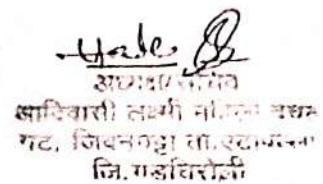 अध्यक्ष/सचिव
आदिवासी लक्ष्मी महिला बचत
गट, जिवनगट्टा ता.एटापल्ली
जि.गडचिरोली